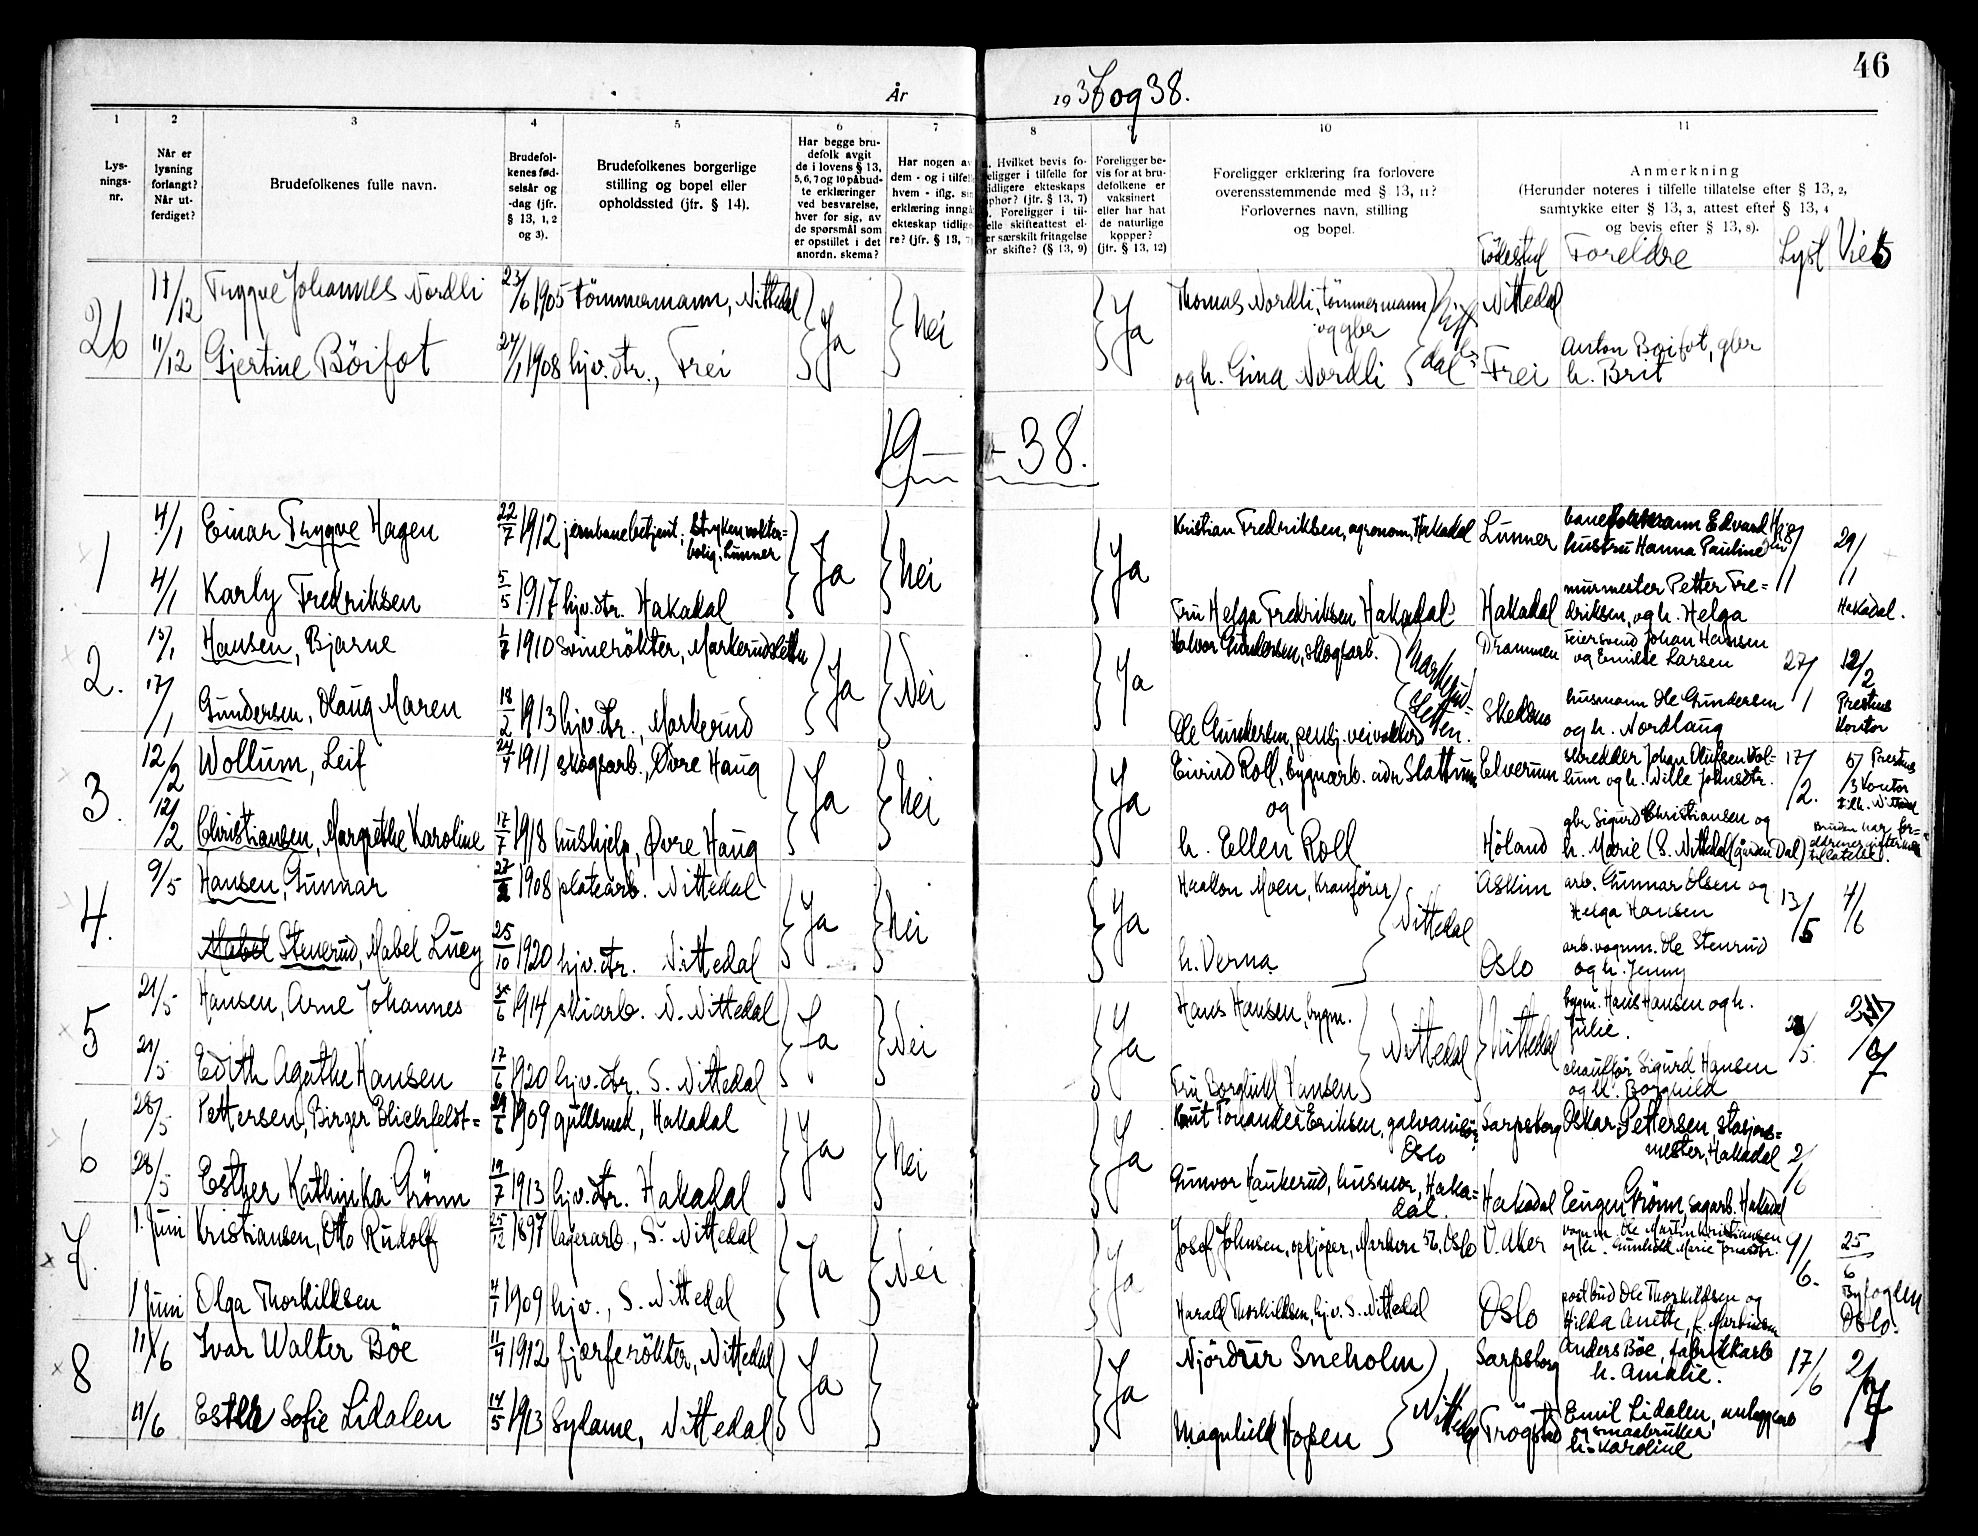 46
År 1937 og 38.
1
2
3
4
5
6
7
8
9
10
11
Lys-
nings-
nr.
Når er
lysning
forlangt?
Når ut-
ferdiget?
Brudefolkenes fulle navn.
Brudefol-
kenes fød-
selsår og
-dag (jfr.
§ 13, 1, 2
og 3).
Brudefolkenes borgerlige
stilling og bopel eller
opholdssted (jfr. § 14).
Har begge bru-
defolk avgit
de i lovens § 13,
5, 6, 7 og 10 påbud-
te erklæringer
ved besvarelse,
hver for sig, av
de spørsmål som
er opstillet i det
anordn. skema?
Har nogen av
dem - og i tilfel
hvem - iflg. si
erklæring inngå
ekteskap tidlige
re? (jfr. § 13, 7
. Hvilket bevis fo-
eligger i tilfelle for
idligere ekteskaps
phør? (jfr. § 13, 7)
. Foreligger i til-
elle skifteattest el-
er særskilt fritagelse
or skifte? (§ 13, 9)
Foreligger be-
vis for at bru-
defolkene er
vaksinert
eller har hat
de naturlige
kopper?
(jfr. § 13, 12)
Foreligger erklæring fra forlovere
overensstemmende med § 13, 11?
Forlovernes navn, stilling
og bopel.
Anmerkning
(Herunder noteres i tilfelle tillatelse efter § 13, 2,
samtykke efter § 13, 3, attest efter § 13, 4
og bevis efter § 13, 8).
Fødested Foreldre Lyst Viet
26
11/12 Trygve Johannes Nordli 23/6 1905 tömmermann, Nittedal Ja Nei Ja Thomas Nordli, tömmermann Nittedal
og gbr
11/12 Gjertine Böifot 24/1 1908 hjv. dtr., Frei og h. Gina Nordli Frei Anton Böifot, gbr
h. Brit
19 — 38.
1
4/1 Einar Trygve Hagen 22/7 1912 jernbanebetjent, Stryken vokter-
bolig, Lunner Ja Nei Ja Kristian Fredriksen, agronom, Hakadal Lunner Edvard
hustru Hanna Pauline 29/1
4/1 Karly Fredriksen 5/5 1917 hjv. dtr. Hakadal Fru Helga Fredriksen Hakadal Hakadal murmester Petter Fre-
driksen, og h. Helga Hakadal.
2.
Hansen, Bjarne 1/7 1910 Svinerökter, Markerudsletten Ja Nei Ja Halvor Gundersen, skogsarb. Drammen feiersvend Johan Hansen
og Emilie Larsen 27/1 12/2
17/1 Gundersen, Olaug Maren 18/2 1913 hjv. dtr., Markerud Ole Gundersen, pensj. veivokter Markerud-
sletten. Skedsmo husmann Ole Gundersen
og h. Nordlaug Prestens
kontor
3.
12/2 Wollum, Leif 24/4 1911 skogsarb., Øvre Haug Ja Nei Ja Eivind Roll, bygnarb. adr. Slattum Elverum skredder Johan Olufsen Wol-
lum og h. Nille Johnsdtr. 17/2. 5/3 Prestens
kontor
og
12/2 Christiansen, Margrethe Karoline 17/7 1918 hushjelp, Øvre Haug h. Ellen Roll Höland gbr Sigurd Christiansen og
h. Marie (S. Nittedal (gården Dal) Bruden har for-
tillatelse.
4.
9/5 Hansen, Gunnar 1908 platearb. Nittedal Ja Nei Ja Haakon Moen, Kranförer Nittedal Askim arb. Gunnar Olsen og
Helga Hansen 13/5 4/6
Mabel Stenerud, Mabel Lucy 25/10 1920 hjv. dtr. Nittedal h. Verna Oslo arb. vognm. Ole Stenrud
og h. Jenny
5
21/5 Hansen, Arne Johannes 1914 skiarb. N. Nittedal Ja Nei Ja Hans Hansen, bygm. Nittedal Nittedal bygm. Hans Hansen og h.
Julie.
21/5 Edith Agathe Hansen 17/6 1920 hjv. dtr. S. Nittedal Fru Borghild Hansen chauffør Sigurd Hansen
og h. Borghild
6
28/5 Pettersen, Birger Blichfeldt- 1909 gullsmed, Hakadal Ja Nei Ja Knut Tonander Eriksen, galvanisör
Oslo Sarpsborg Oskar Pettersen stasjons-
mester, Hakadal 2/6
28/5 Esther Kathinka Grönn 19/7 1913 hjv. dtr. Hakadal Gunvor Haukerud, husmor, Haka-
dal. Hakadal Eeugen Grönn, sagarb. Hakadal
7.
1. Juni Kristiansen, Otto Rudolf 25/12 1897 lagerarb., S. Nittedal Ja Nei Ja Josef Johnsen, opkjöper, Markvn 56, Oslo V. Aker vognm. Ole Martin Kristiansen
og h. Gunhild Marie 4/6. 25/6
1 Juni Olga Thorkildsen 4/1 1909 hjv., S. Nittedal Harald Thorkildsen, hjv. S. Nittedal Oslo postbud Ole Thorkildsen og
Hilda Anette, f. Martinsen Byfogden
Oslo.
8
11/6 Ivar Walter Böe 11/4 1912 fjærferökter, Nittedal Ja Ja Njördur Sneholm Nittedal Sarpsborg Anders Böe, fabrikkarb
h. Amalie. 17/6 2/7
11/6 Ester Sofie Lidalen 14/5 1913 Sydame, Nittedal Magnhild Hopen Trögstad Emil Lidalen, anleggsarb
og smaabruker
h. Karoline